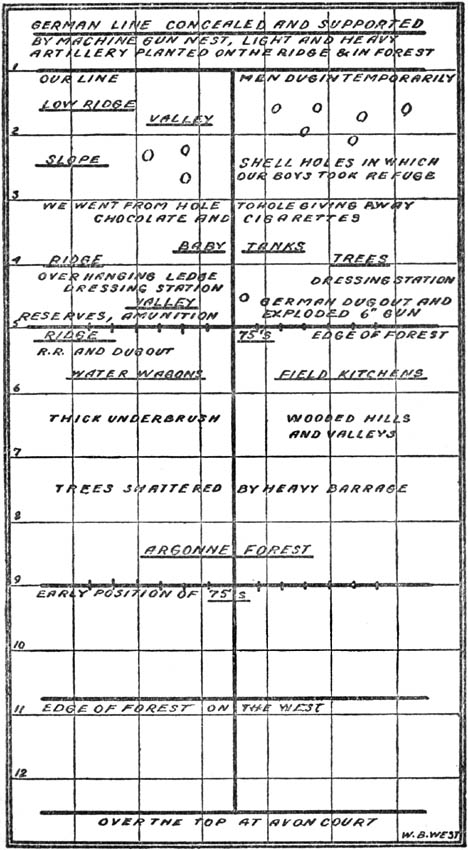 GERMAN LINE CONCEALED AND SUPPORTED
BY MACHINE GUN NEST, LIGHT AND HEAVY
ARTILLERY PLANTED ON THE RIDGE & IN FOREST
1
OUR LINE MEN DUG IN TEMPORARILY
LOW RIDGE
VALLEY
2
SLOPE SHELL HOLES IN WHICH
OUR BOYS TOOK REFUGE
3
WE WENT FROM HOLE TO HOLE GIVING AWAY
CHOCOLATE AND CIGARETTES
BABY TANKS
4
RIDGE TREES
OVERHANGING LEDGE
DRESSING STATION DRESSING STATION
VALLEY GERMAN DUGOUT AND
RESERVES, AMUNITION EXPLODED 6" GUN
5
RIDGE 75'S EDGE OF FOREST
R.R. AND DUGOUT
WATER WAGONS FIELD KITCHENS
6
THICK UNDERBRUSH WOODED HILLS
AND VALLEYS
7
TREES SHATTERED BY HEAVY BARRAGE
8
ARGONNE FOREST
9
EARLY POSITION OF 75'S
10
11
EDGE OF FOREST ON THE WEST
12
OVER THE TOP AT AVONCOURT
W.B.WEST